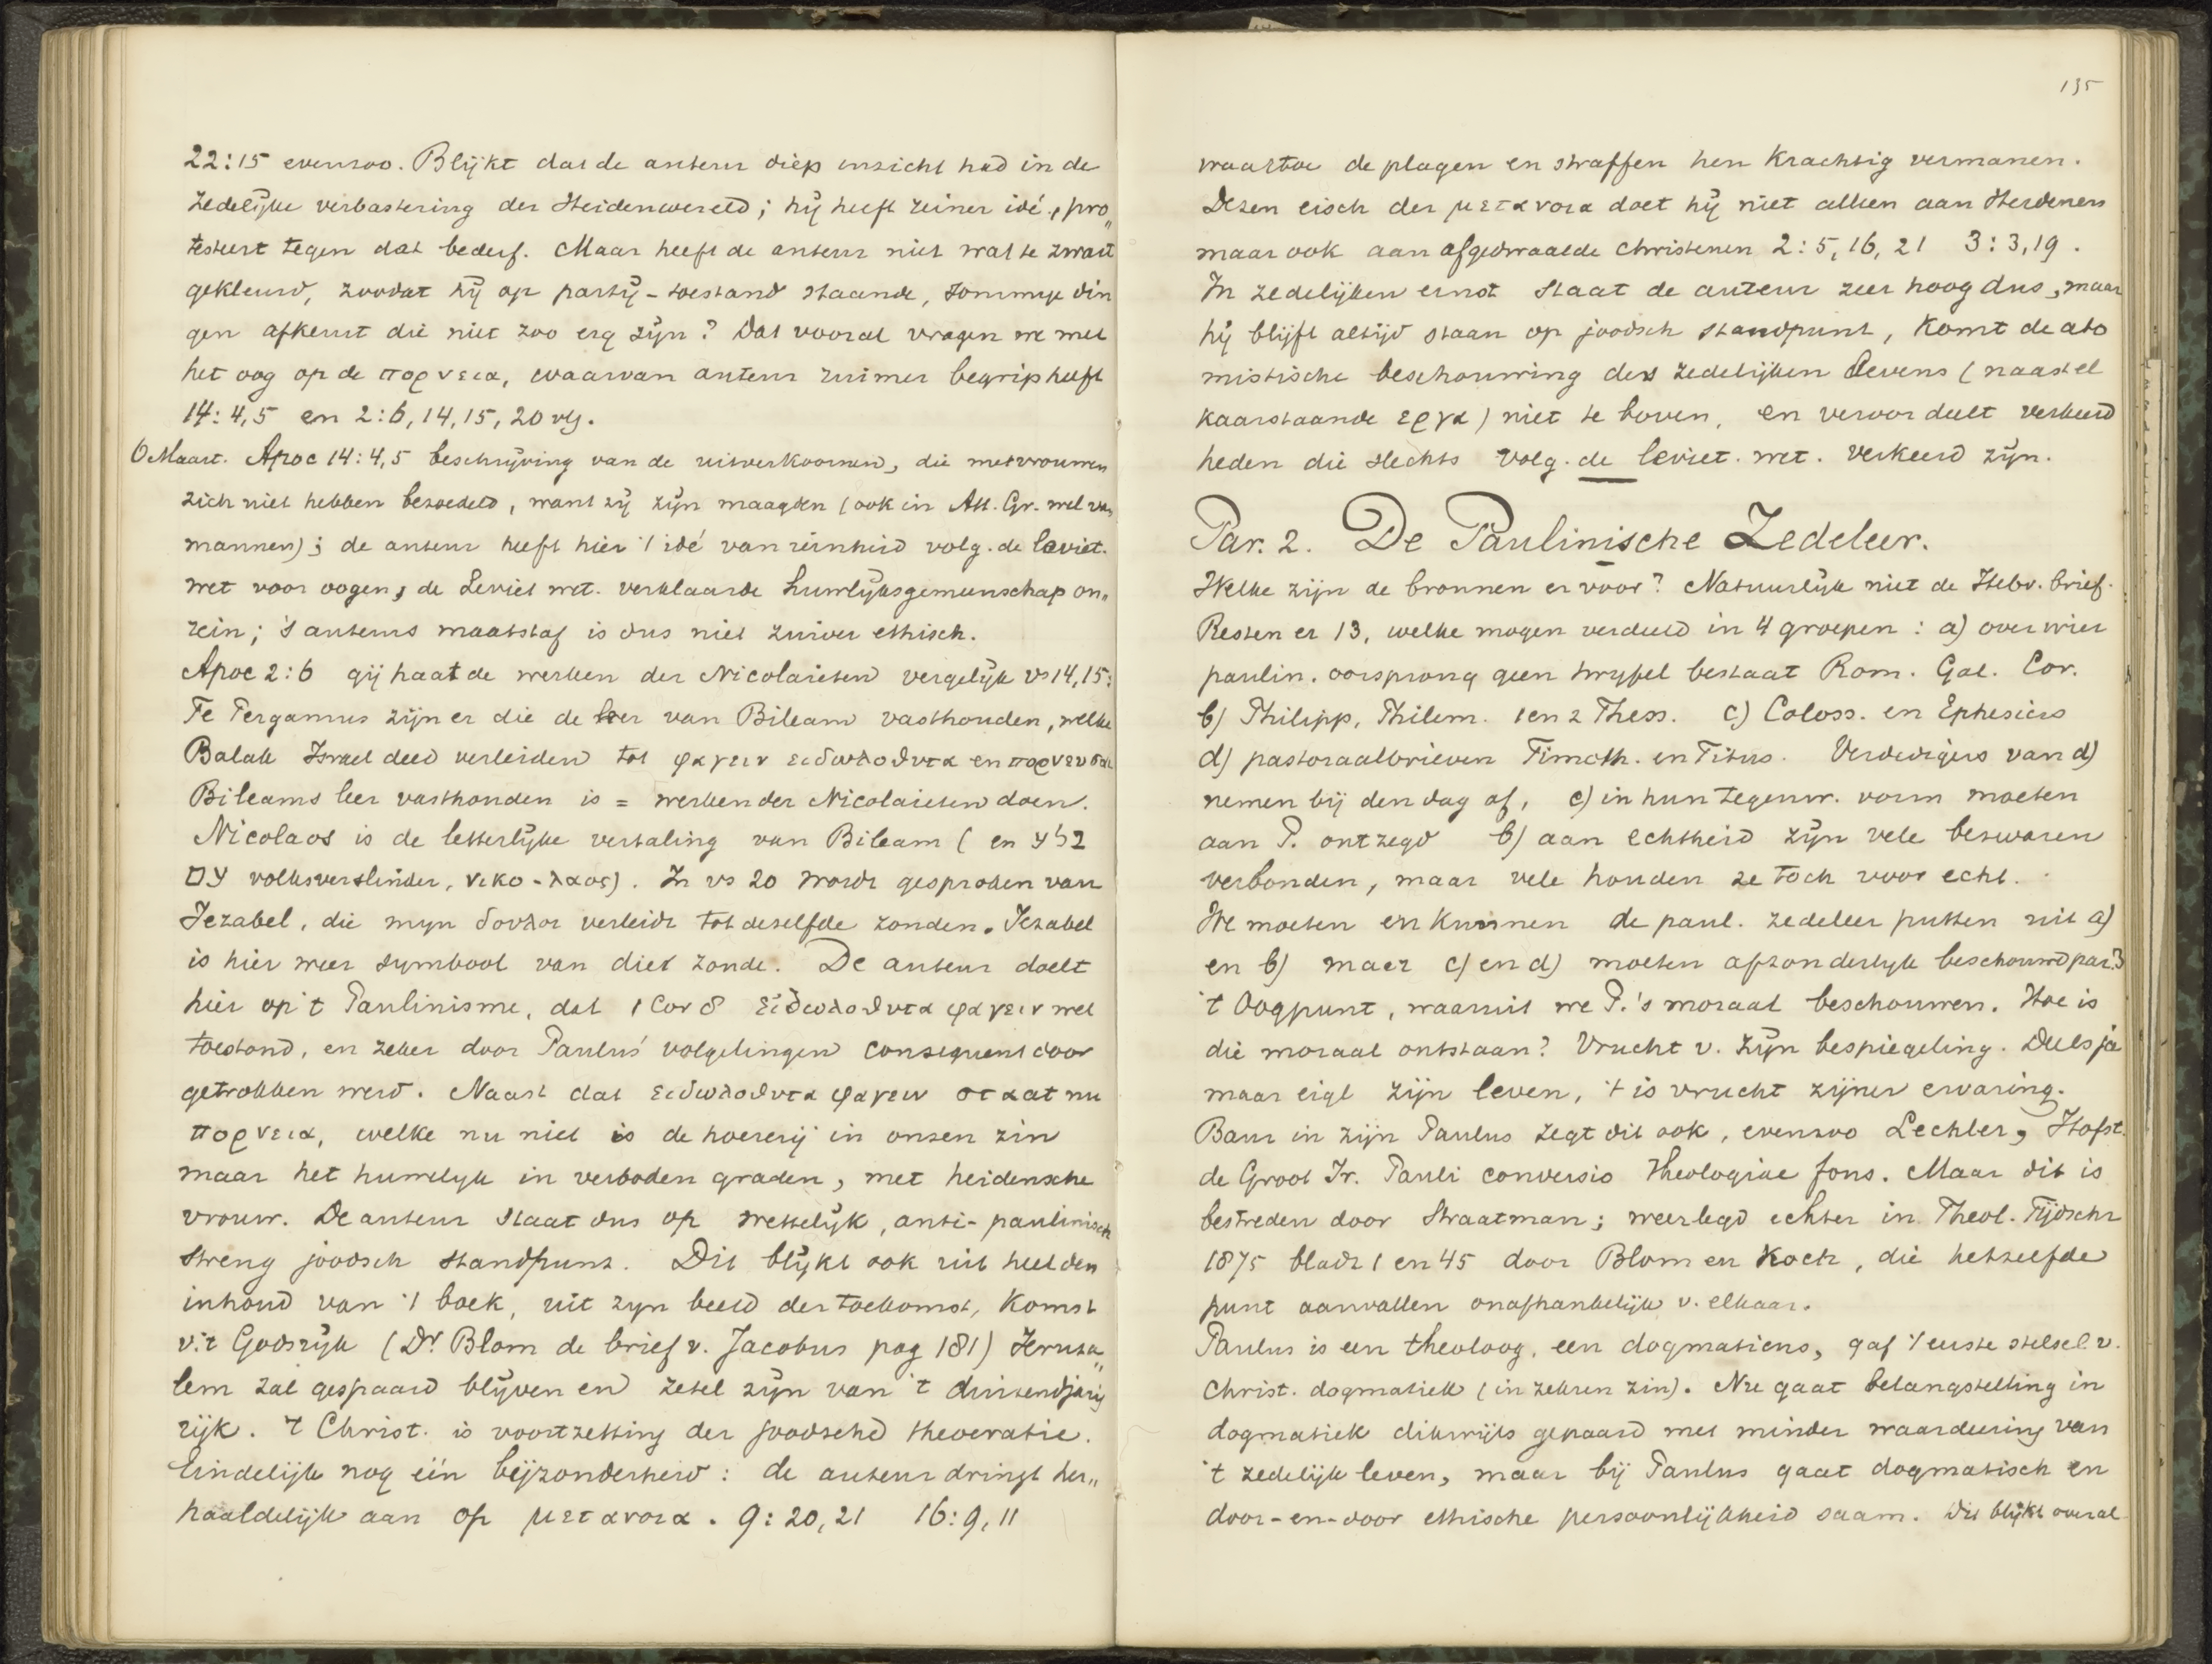 22:15 evenzoo. Blijkt dat de auteur diep inzicht had in de
zedelijke verbastering der Heidenwereld; hij heeft reiner idé, pro„
testeert tegen dat bederf. Maar heeft de auteur niet wat te zwart
gekleurd, zoodat hij op partij-toestand staande, sommige din
gen afkeurt die niet zoo erg zijn? Dat vooral vragen we met
het oog op de πορνεια, waarvan auteur ruimer begrip heeft
14:4,5 en 2:6,14,15,20 vlg.
6 Maart. Apoc 14:4,5 beschrijving van de uitverkoornen, die met vrouwen
zich niet hebben bezoedeld, want zij zijn maagden (ook in Att. Gr. wel van
mannen); de auteur heeft hier 't idé van reinheid volg. de leviet.
wet voor oogen; de Leviet wet. verklaarde huwlijksgemeenschap on„
rein; 's auteurs maatstaf is dus niet zuiver ethisch.
Apoc 2:6 gij haat de werken der Nicolaieten vergelijk vs 14,15:
Te Pergamus zijn er die de leer van Bileam vasthouden, welke
Balak Israel deed verleiden tot φαγειν ειδωλοθυτα en πορνευσαι
Bileams leer vasthouden is = werken der Nicolaieten doen.
Nicolaos is de letterlijke vertaling van Bileam (en בלע
עם volksverslinder, νικο-λαος). In vs 20 wordt gesproken van
Jezabel, die mijn δουλοι verleidt tot deselfde zonden. Jezabel
is hier weer symbool van die zonde. De auteur doelt
hier op 't Paulinisme, dat 1 Cor 8 ειδωλοθυτα φαγειν wel
toestond, en zeker door Paulus' volgelingen consequent door
getrokken werd. Naast dat ειδωλοθυτα φαγειν staat nu
πορνεια, welke nu niet is de hoererij in onzen zin
maar het huwelyk in verboden graden, met heidensche
vrouw. De auteur staat dus op wettelijk, anti-paulinisch
streng joodsch standpunt. Dit blijkt ook uit heel den
inhoud van 't boek, uit zyn beeld der toekomst, komst
v. 't Godsrijk (Dr. Blom de brief v. Jacobus pag 181) Jeruza„
lem zal gespaard blijven en zetel zijn van 't duizendjarig
rijk. 't Christ. is voortzetting der joodsche theocratie.
Eindelijk nog één bijzonderheid: de auteur dringt her„
haaldelijk aan op μετανοια. 9:20,21 16:9,11
135
waartoe de plagen en straffen hen krachtig vermanen.
Dezen eisch der μετανοια doet hij niet alleen aan Heidenen
maar ook aan afgedwaalde Christenen 2:5,16,21 3:3,19.
In zedelijken ernst staat de auteur zeer hoog dus, maar
hij blijft altijd staan op joodsch standpunt, komt de ato
mistische beschouwing des zedelijken levens (naast el
kaarstaande εργα) niet te boven, en veroordeelt verkeerd
heden die slechts volg. de leviet. wet. verkeerd zijn.
Par. 2. De Paulinische Zedeleer.
Welke zijn de bronnen er voor? Natuurlijk niet de Hebr. brief.
Resten er 13, welke mogen verdeeld in 4 groepen: a) over wier
paulin. oorsprong geen twyfel bestaat Rom. Gal. Cor.
b) Philipp, Philem. 1 en 2 Thess. c) Coloss. en Ephesiers
d) pastoraalbrieven Timoth. en Titus. Verdedigers van d)
nemen bij den dag af, c) in hun tegenw. vorm moeten
aan P. ontzegd b) aan echtheid zijn vele bezwaren
verbonden, maar vele houden ze toch voor echt.
We moeten en kunnen de paul. zedeleer putten uit a)
en b) maar c) en d) moeten afzonderlyk beschouwd par. 3
't Oogpunt, waaruit we P.'s moraal beschouwen. Hoe is
die moraal ontstaan? Vrucht v. zijn bespiegeling. Deels ja
maar eigl zijn leven, 't is vrucht zijner ervaring.
Baur in zijn Paulus zegt dit ook, evenzoo Lechler, Hofst.
de Groot Jr. Pauli conversio Theologiae fons. Maar dit is
bestreden door Straatman; weerlegd echter in Theol. Tijdschr
1875 bladz 1 en 45 door Blom en Koch, die hetzelfde
punt aanvallen onafhankelijk v. elkaar.
Paulus is een theoloog, een dogmaticus, gaf 't eerste stelsel v.
Christ. dogmatiek (in zekeren zin). Nu gaat belangstelling in
dogmatiek dikwijls gepaard met minder waardeering van
't zedelijk leven, maar bij Paulus gaat dogmatisch en
door-en-door ethische persoonlijkheid saam. Dit blijkt overal